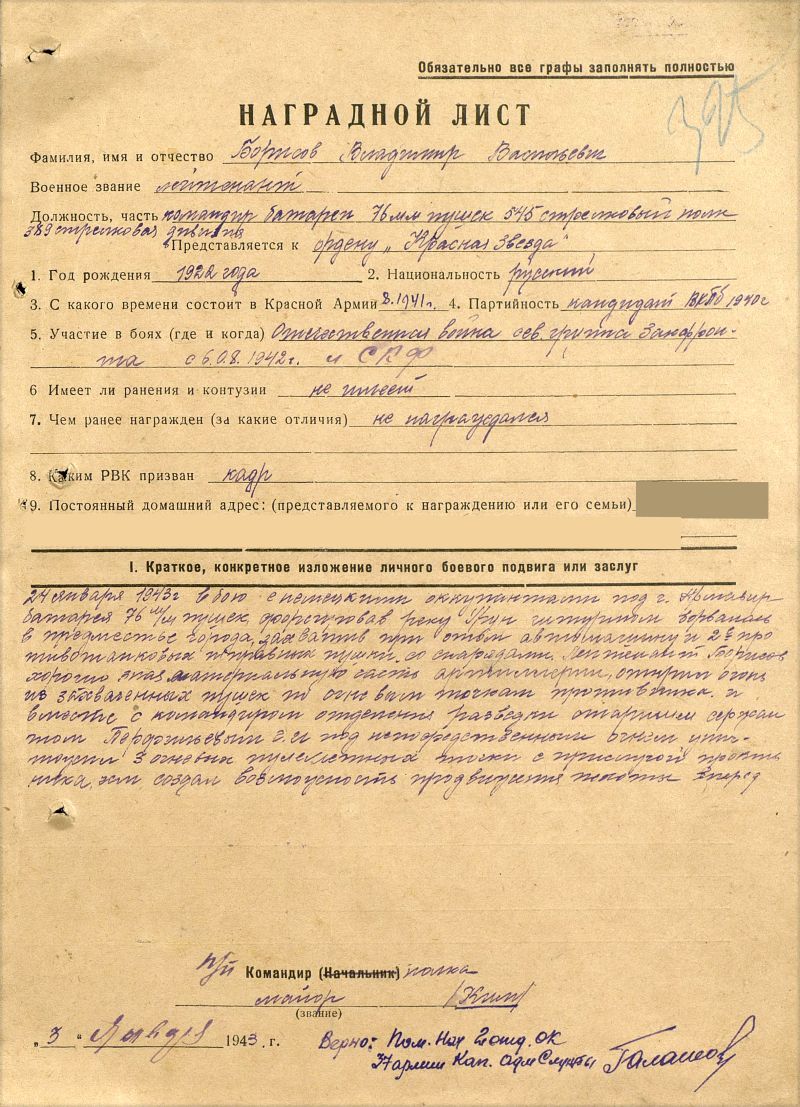 Обязательно все графы заполнять полностью
395
НАГРАДНОЙ ЛИСТ
Фамилия, имя и отчество Борисов Владимир Васильевич
Военное звание лейтенант
Должность, часть командир батареи 76 мм пушек 545 стрелковый полк
389 стрелковая дивизия
Представляется к ордену „Красная Звезда"
1. Год рождения 1922 года 2. Национальность русский
3. С какого времени состоит в Красной Армии 8.1941г. 4. Партийность кандидат ВКПб 1940г
5. Участие в боях (где и когда) Отечественная война сев. группа Закфрон-
та с 6.08.1942г. и СКФ
6 Имеет ли ранения и контузии не имеет
7. Чем ранее награжден (за какие отличия) не награждался
8. Каким РВК призван кадр
9. Постоянный домашний адрес: (представляемого к награждению или его семьи)
I. Краткое, конкретное изложение личного боевого подвига или заслуг
24 января 1943г в бою с немецкими оккупантами под г. Армавир
батарея 76 м/м пушек, форсировав реку Уруп штурмом ворвалась
в предместье города, захватив при этом автомашину и 2 е про
тивотанковых исправных пушки со снарядами. Лейтенант Борисов
хорошо зная материальную часть артиллерии, открыл огонь
из захваченных пушек по огневым точкам противника и
вместе с командиром отделения разведки старшим сержан
том под непосредственным огнем унич-
тожил 3 огневых пулеметных точки с прислугой против
ника, чем создал возможность продвижения пехоты вперед
п/п Командир (Начальник) полка
майор /Ким/
(звание)
„3" 1943. г.
Верно: Пом. Нач 2 отд. ОК
Армии Кап. адм Службы